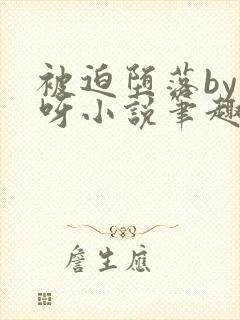 被迫堕落by
呀小说笔趣
詹生应